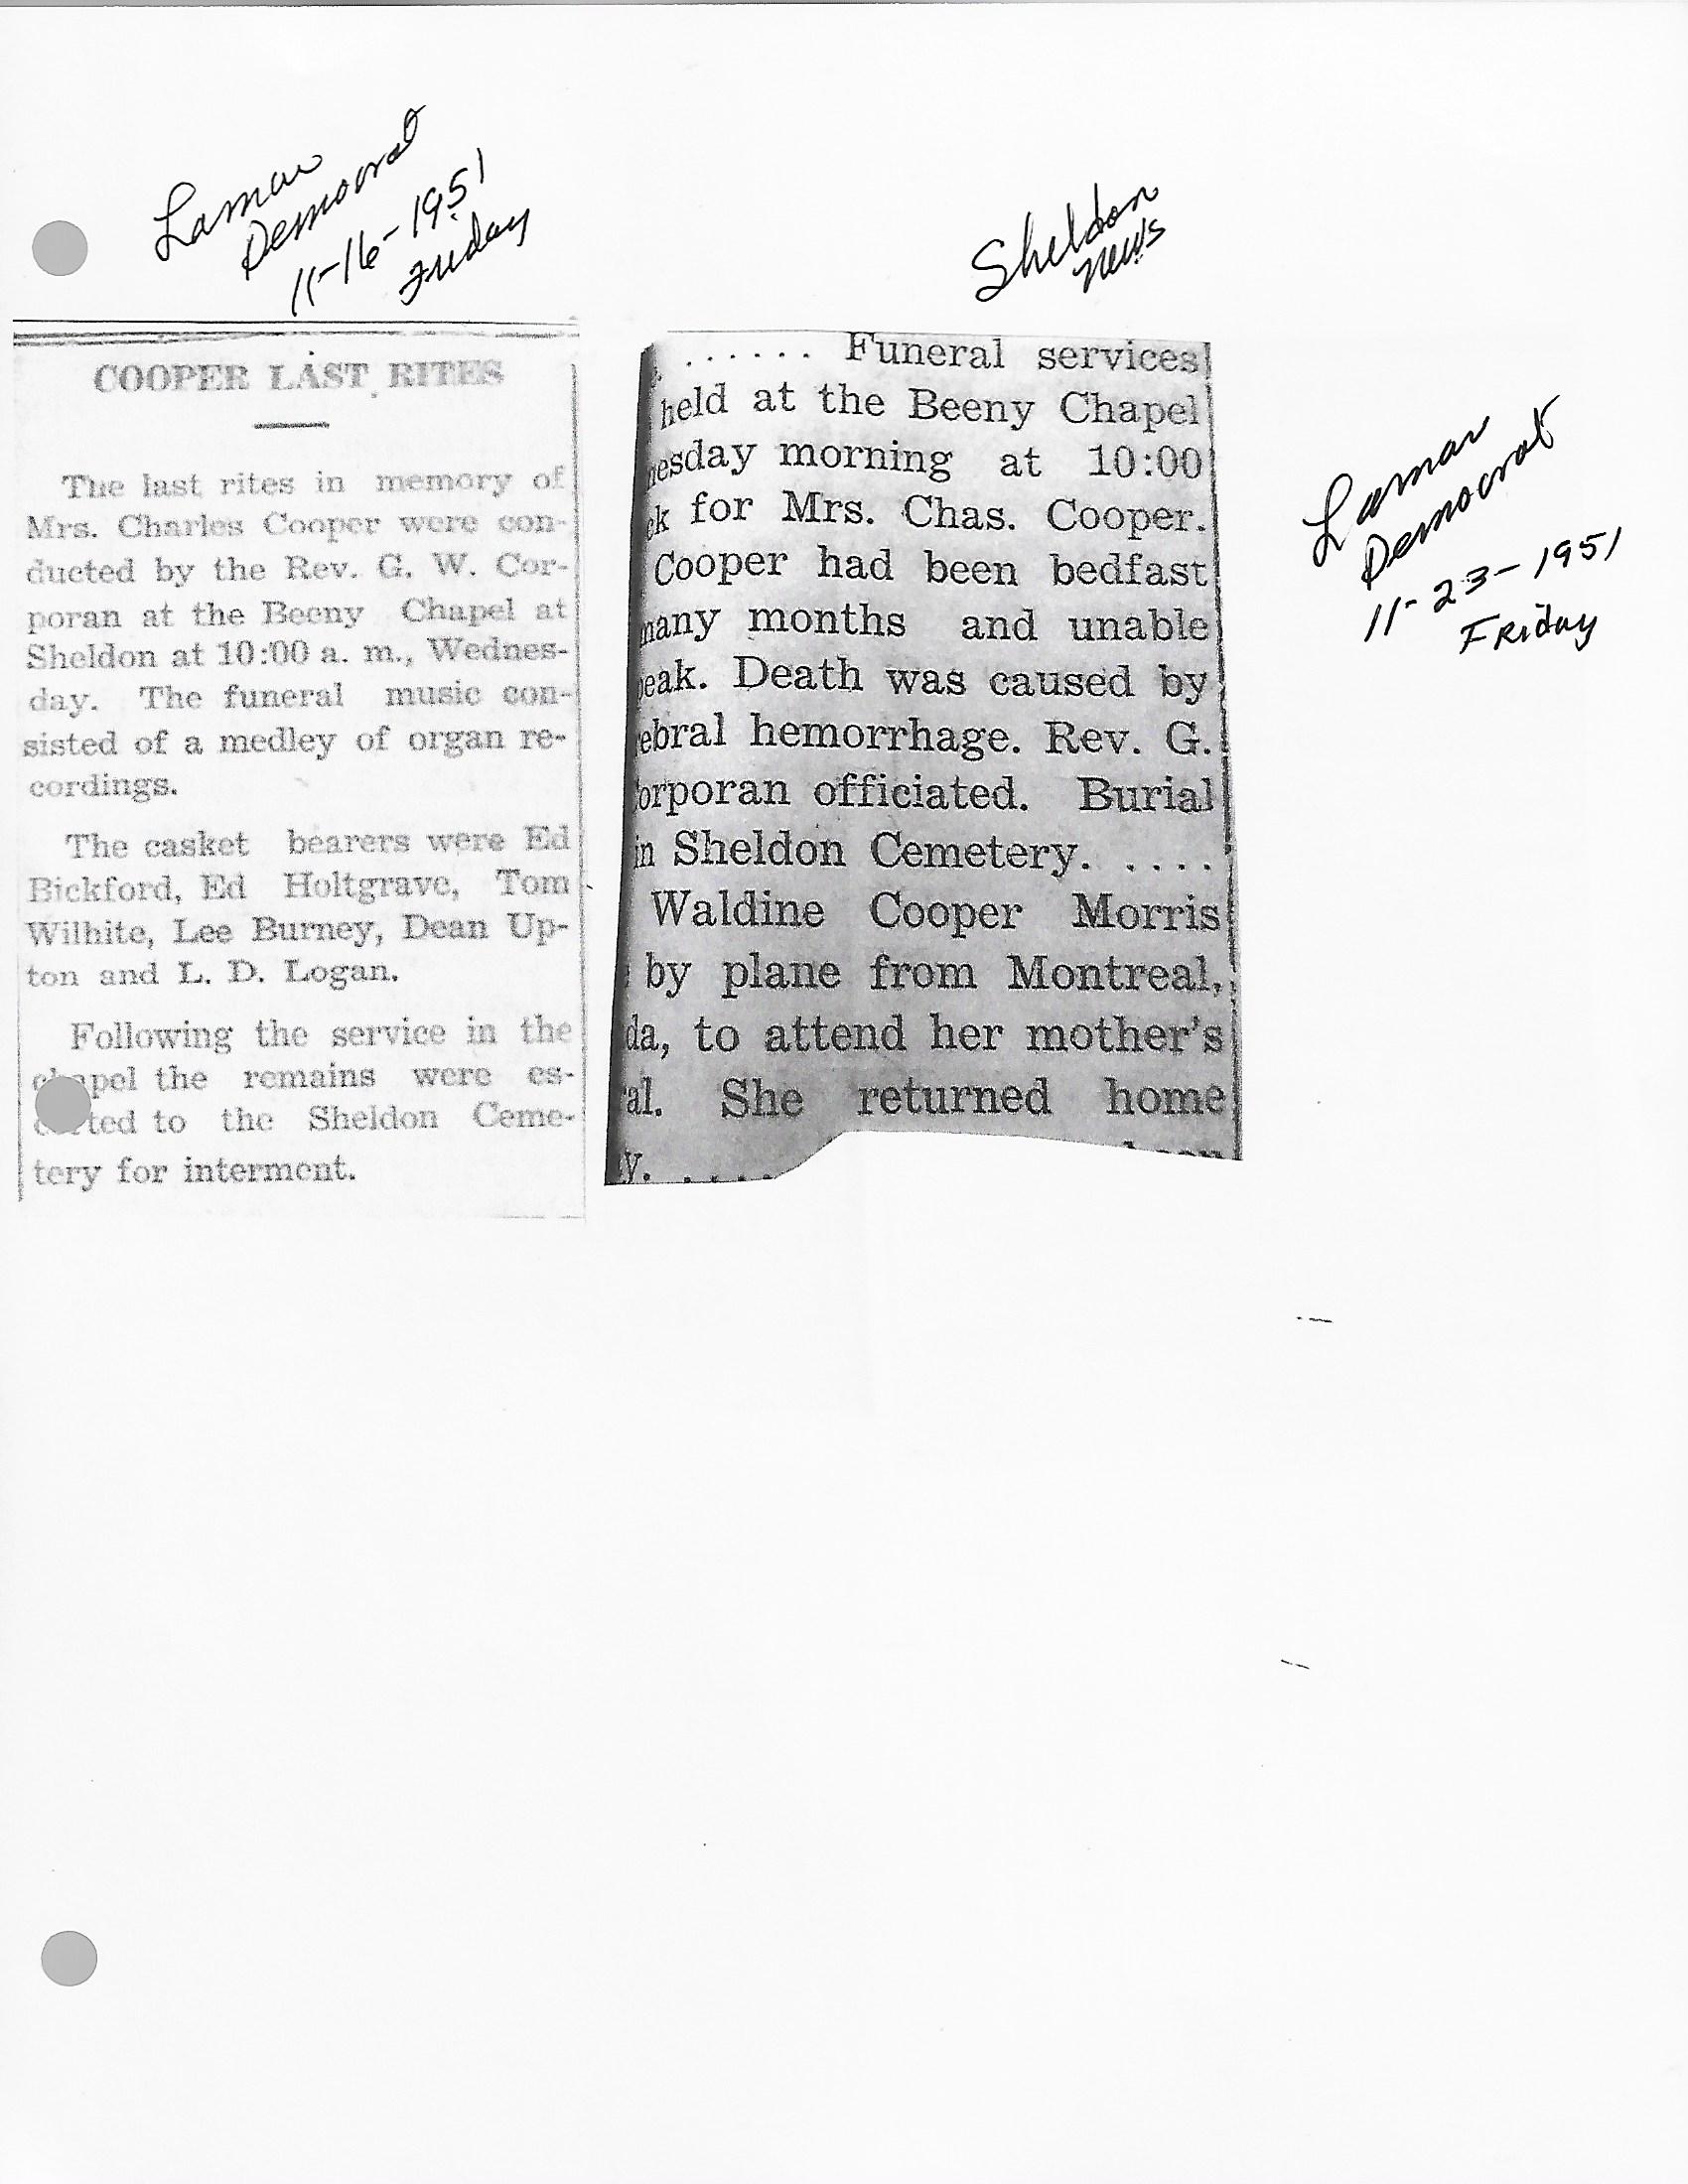 Lamar
Democrat
11-16-1951
Friday
COOPER LAST RITES
The last rites in memory of
Mrs. Charles Cooper were con-
ducted by the Rev. G. W. Cor-
poran at the Beeny Chapel at
Sheldon at 10:00 a. m., Wednes-
day. The funeral music con-
sisted of a medley of organ re-
cordings.
The casket bearers were Ed
Bickford, Ed Holtgrave, Tom
Wilhite, Lee Burney, Dean Up-
ton and L. D. Logan.
Following the service in the
chapel the remains were es-
ted to the Sheldon Ceme-
tery for interment.
Sheldon
News
...... Funeral services
held at the Beeny Chapel
nesday morning at 10:00
ck for Mrs. Chas. Cooper.
Cooper had been bedfast
many months and unable
peak. Death was caused by
ebral hemorrhage. Rev. G.
orporan officiated. Burial
in Sheldon Cemetery. ....
Waldine Cooper Morris
by plane from Montreal,
da, to attend her mother's
ral. She returned home
y. ....
Lamar
Democrat
11-23-1951
Friday